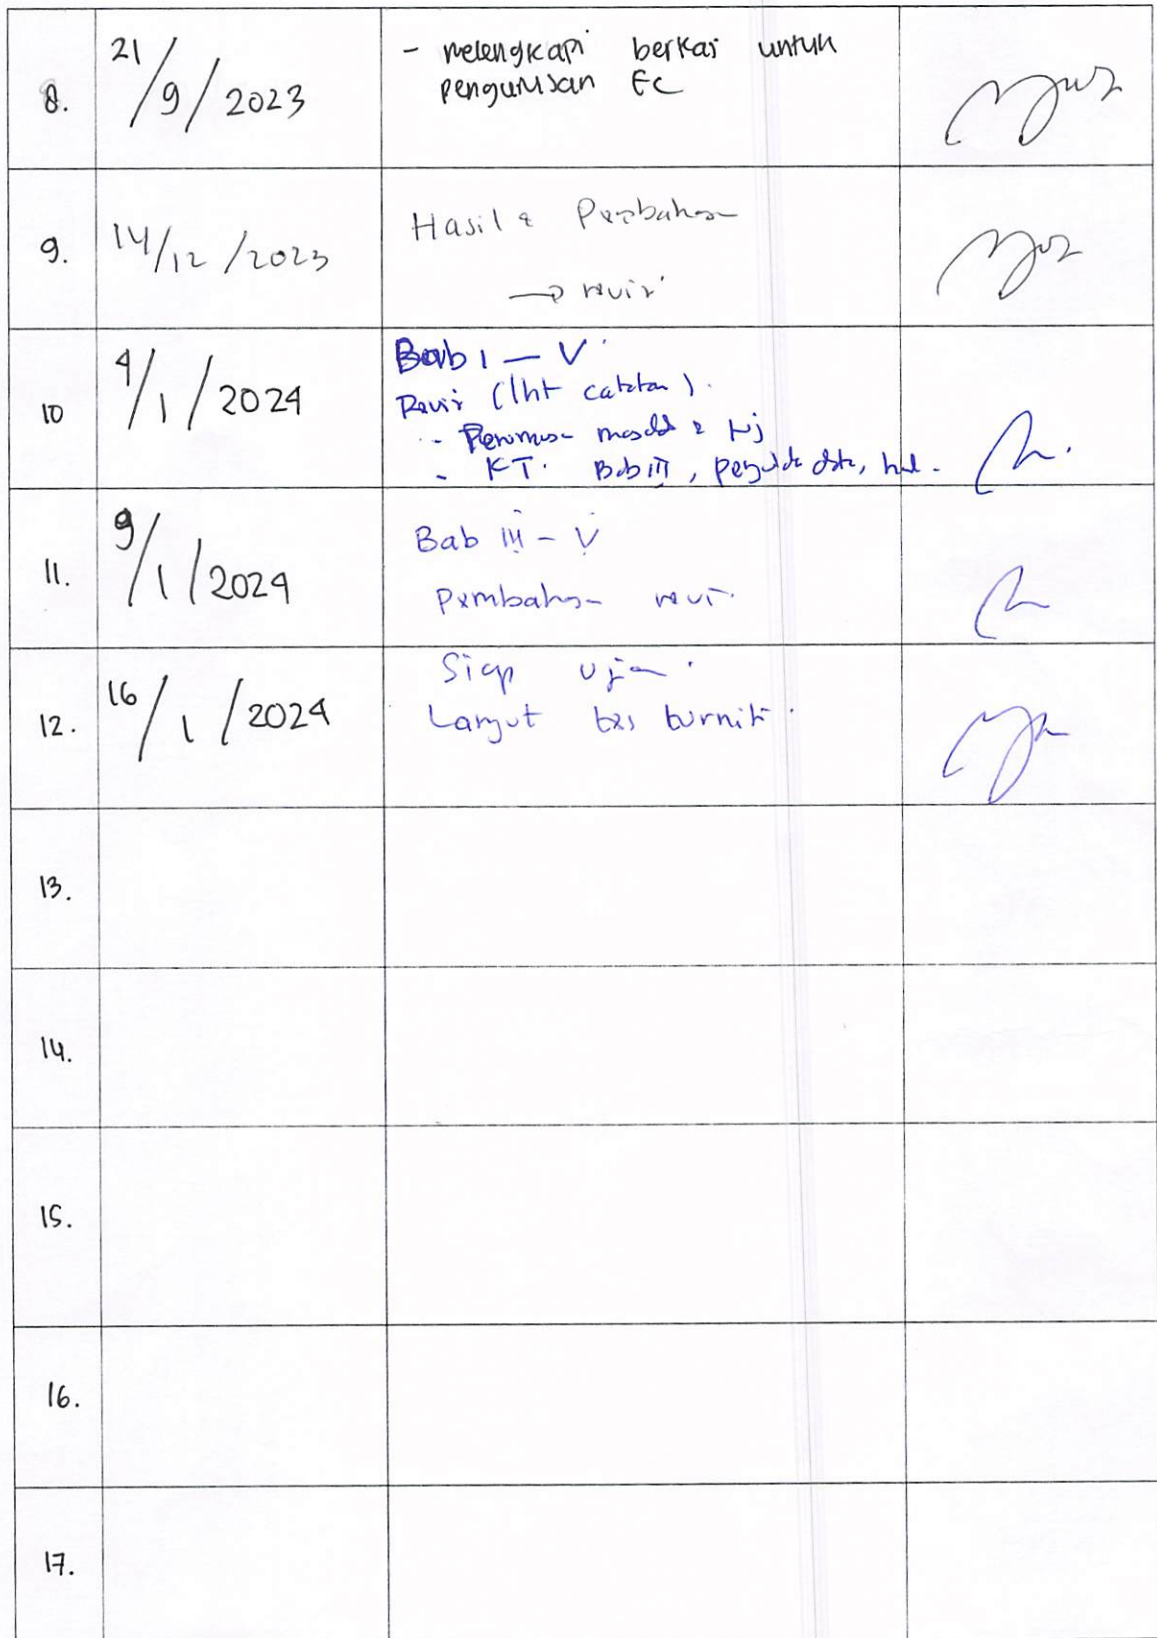 8.
21/9/2023
- melengkapi berkas untuk
pengurusan EC
9.
14/12/2023
Hasil &
→ revisi
10
4/1/2024
Bab I - V
Revisi (lht catatan).
- & tj
- KT. Bab III, data,
11.
9/1/2024
Bab III - V
Pembahasan revisi
12.
16/1/2024
Siap ujian.
Lanjut tes turnitin.
13.
14.
15.
16.
17.